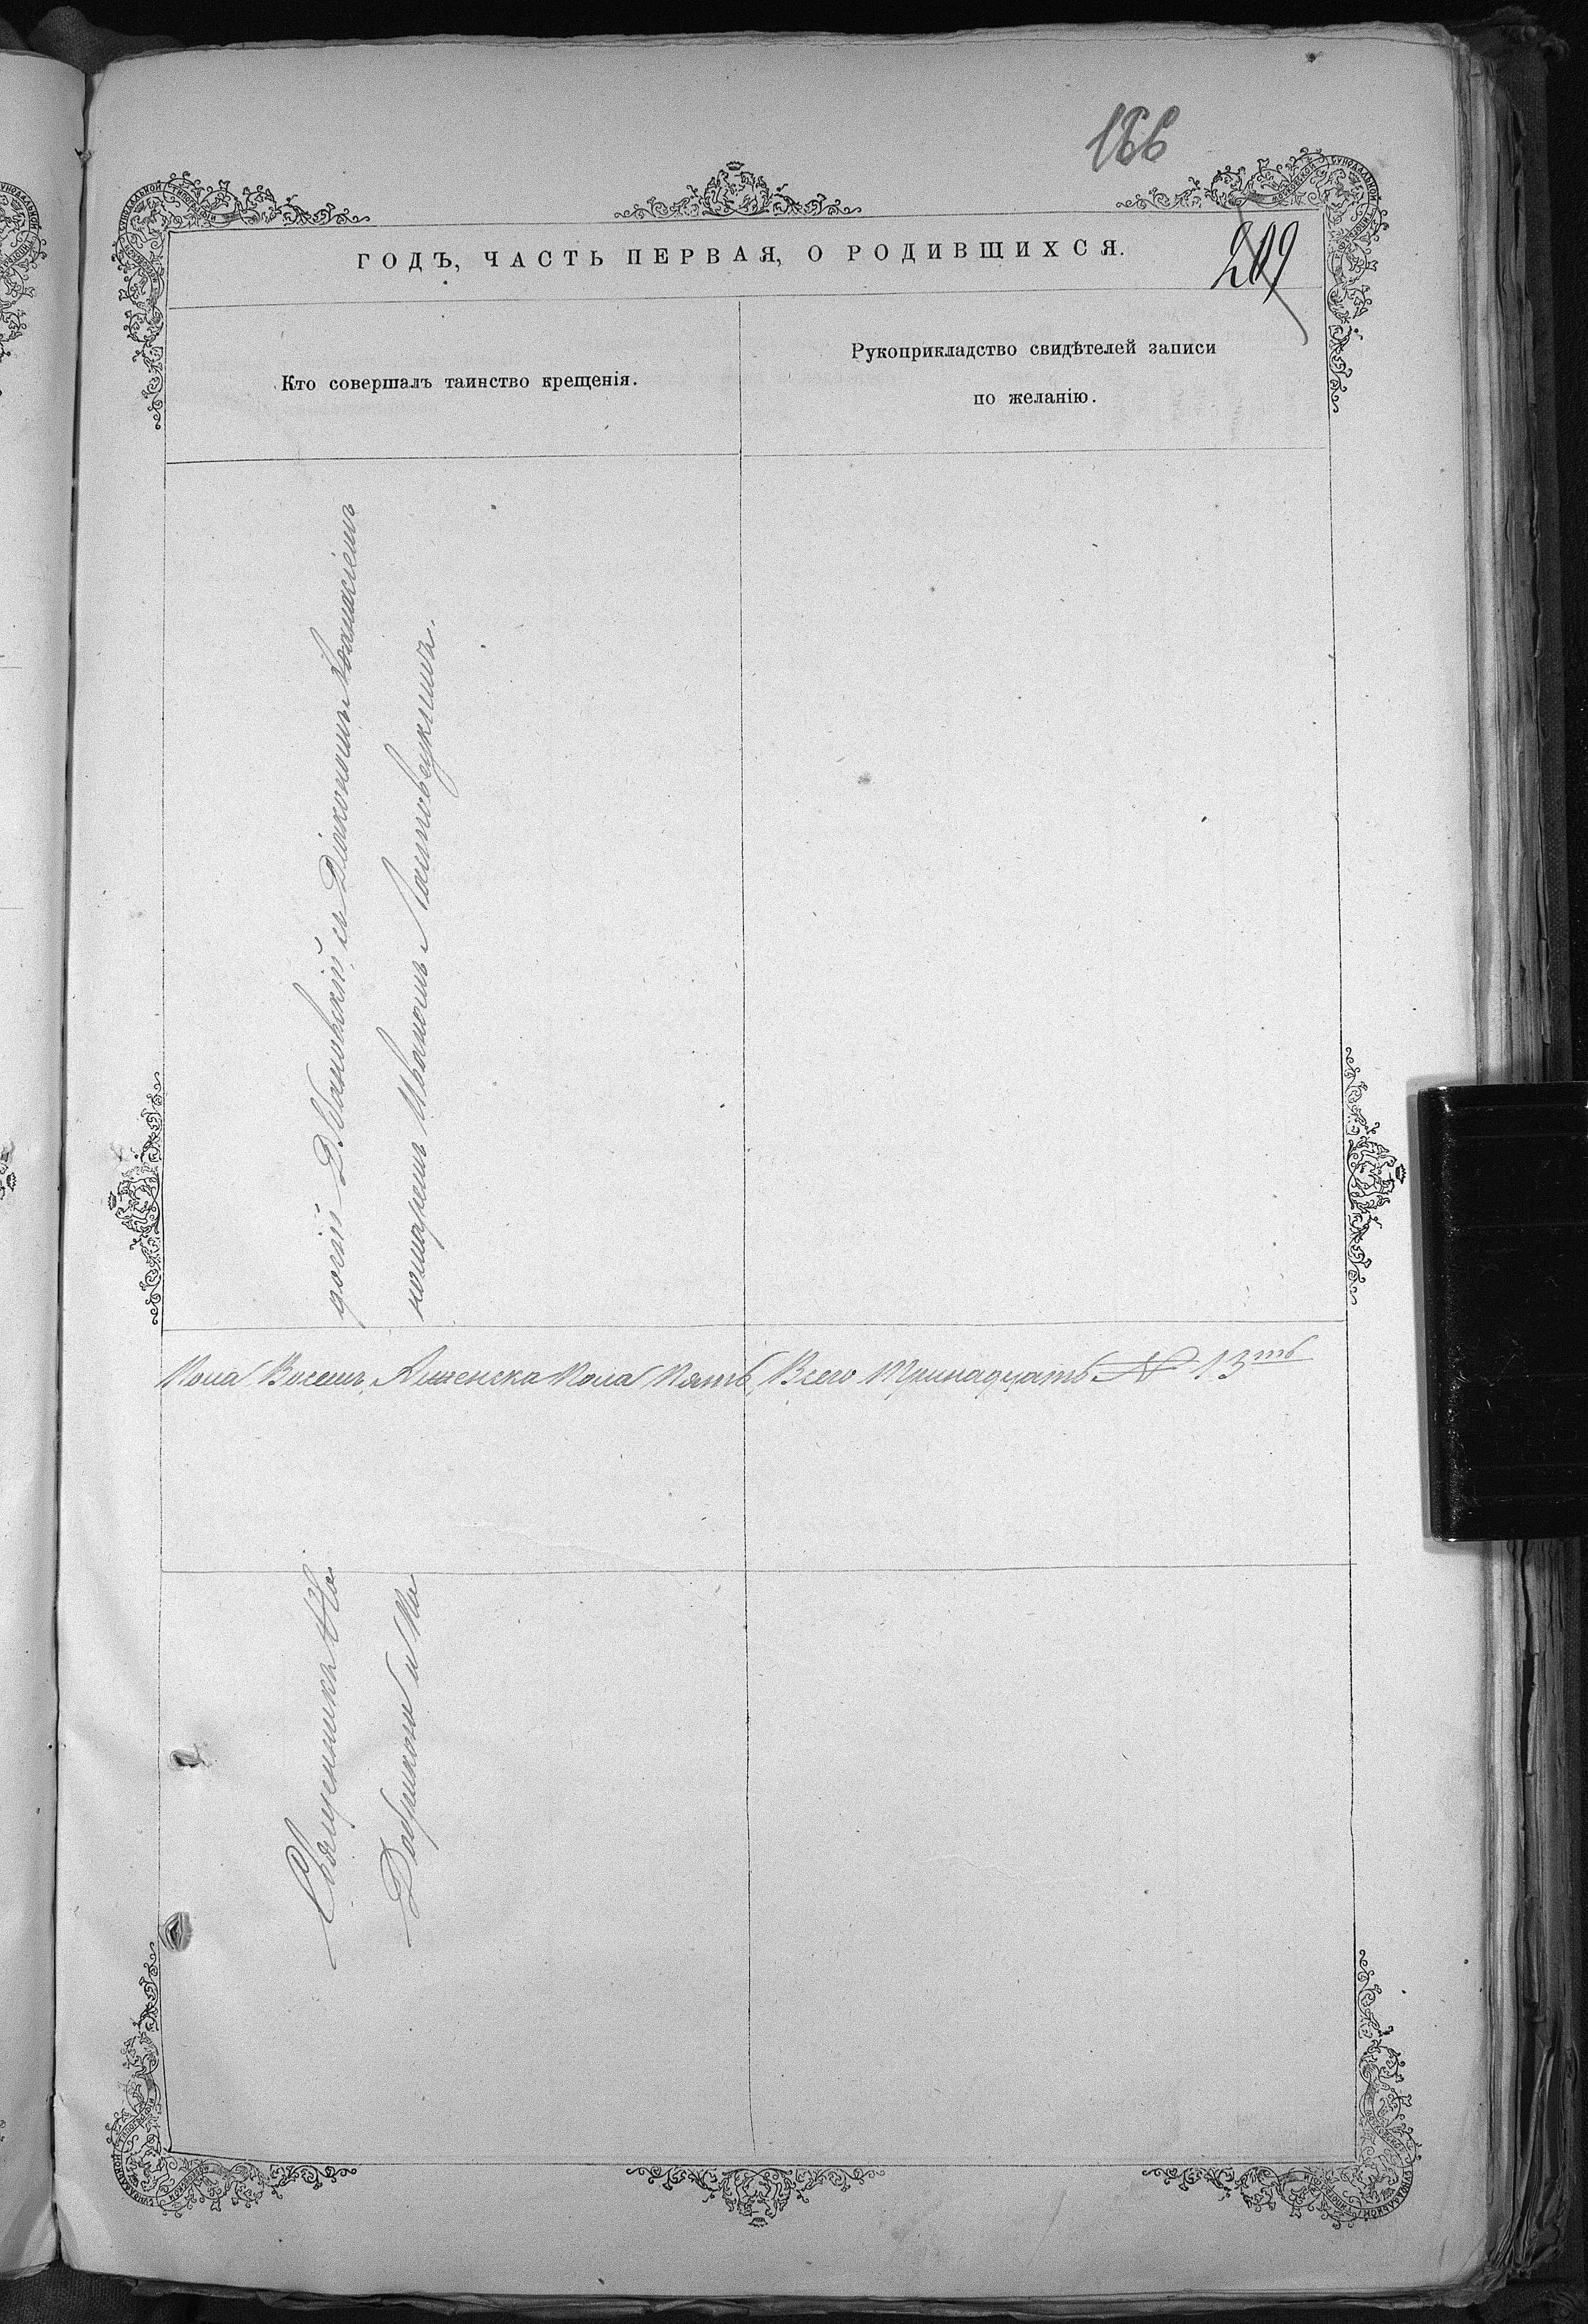 166
209
ГОДЪ, ЧАСТЬ ПЕРВАЯ, О РОДИВШИХСЯ.
Кто совершалъ таинство крещенія.
Рукоприкладство свидѣтелей записи
по желанію.
съ Діакономъ
номаремъ Иваномъ
Пола Восемь, Аженска Пола Пять, Всего Тринадцать № 13ть
Священникъ
и